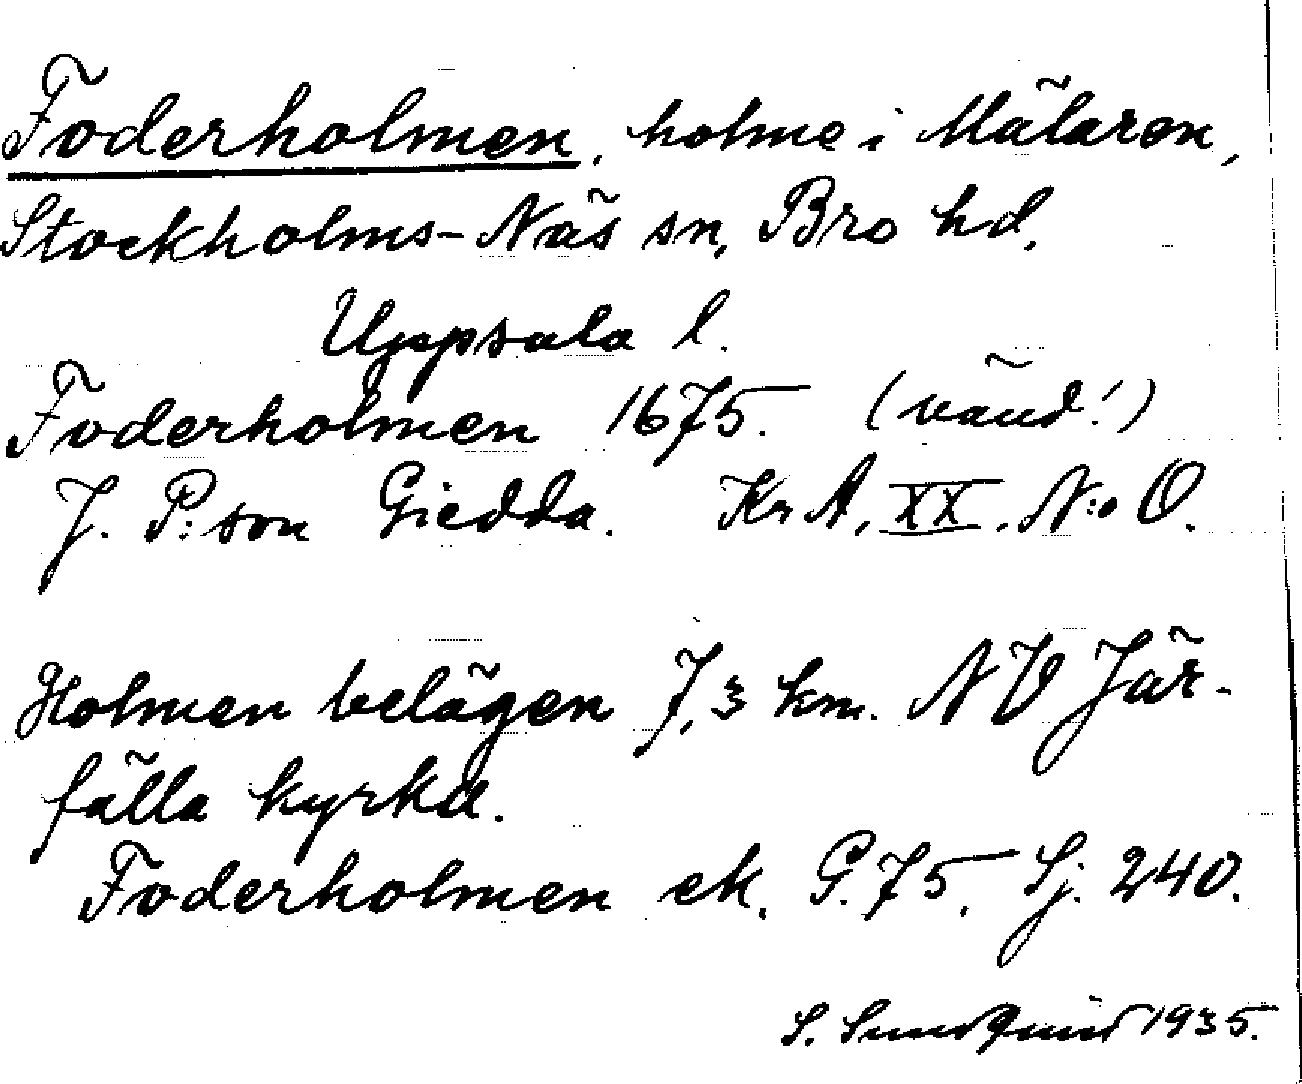 Foderholmen, holme i Mälaren,
Stockholms-Näs sn, Bro hd.
Uppsala l.
Foderholmen 1675. (vänd!)
J. P:son Giedda. Kr A, XX. N:o O.
Holmen belägen 7,3 km. NV Jär-
fälla kyrka.
Foderholmen ek. G. 75, Sj. 240.
S. Sundquist 1935.